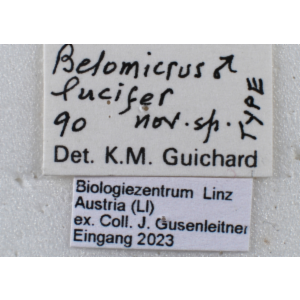 Belomicrus ♂
lucifer
90 nov. sp.
TYPE
Det. K.M. Guichard
Biologiezentrum Linz
Austria (LI)
ex. Coll. J. Gusenleitner
Eingang 2023